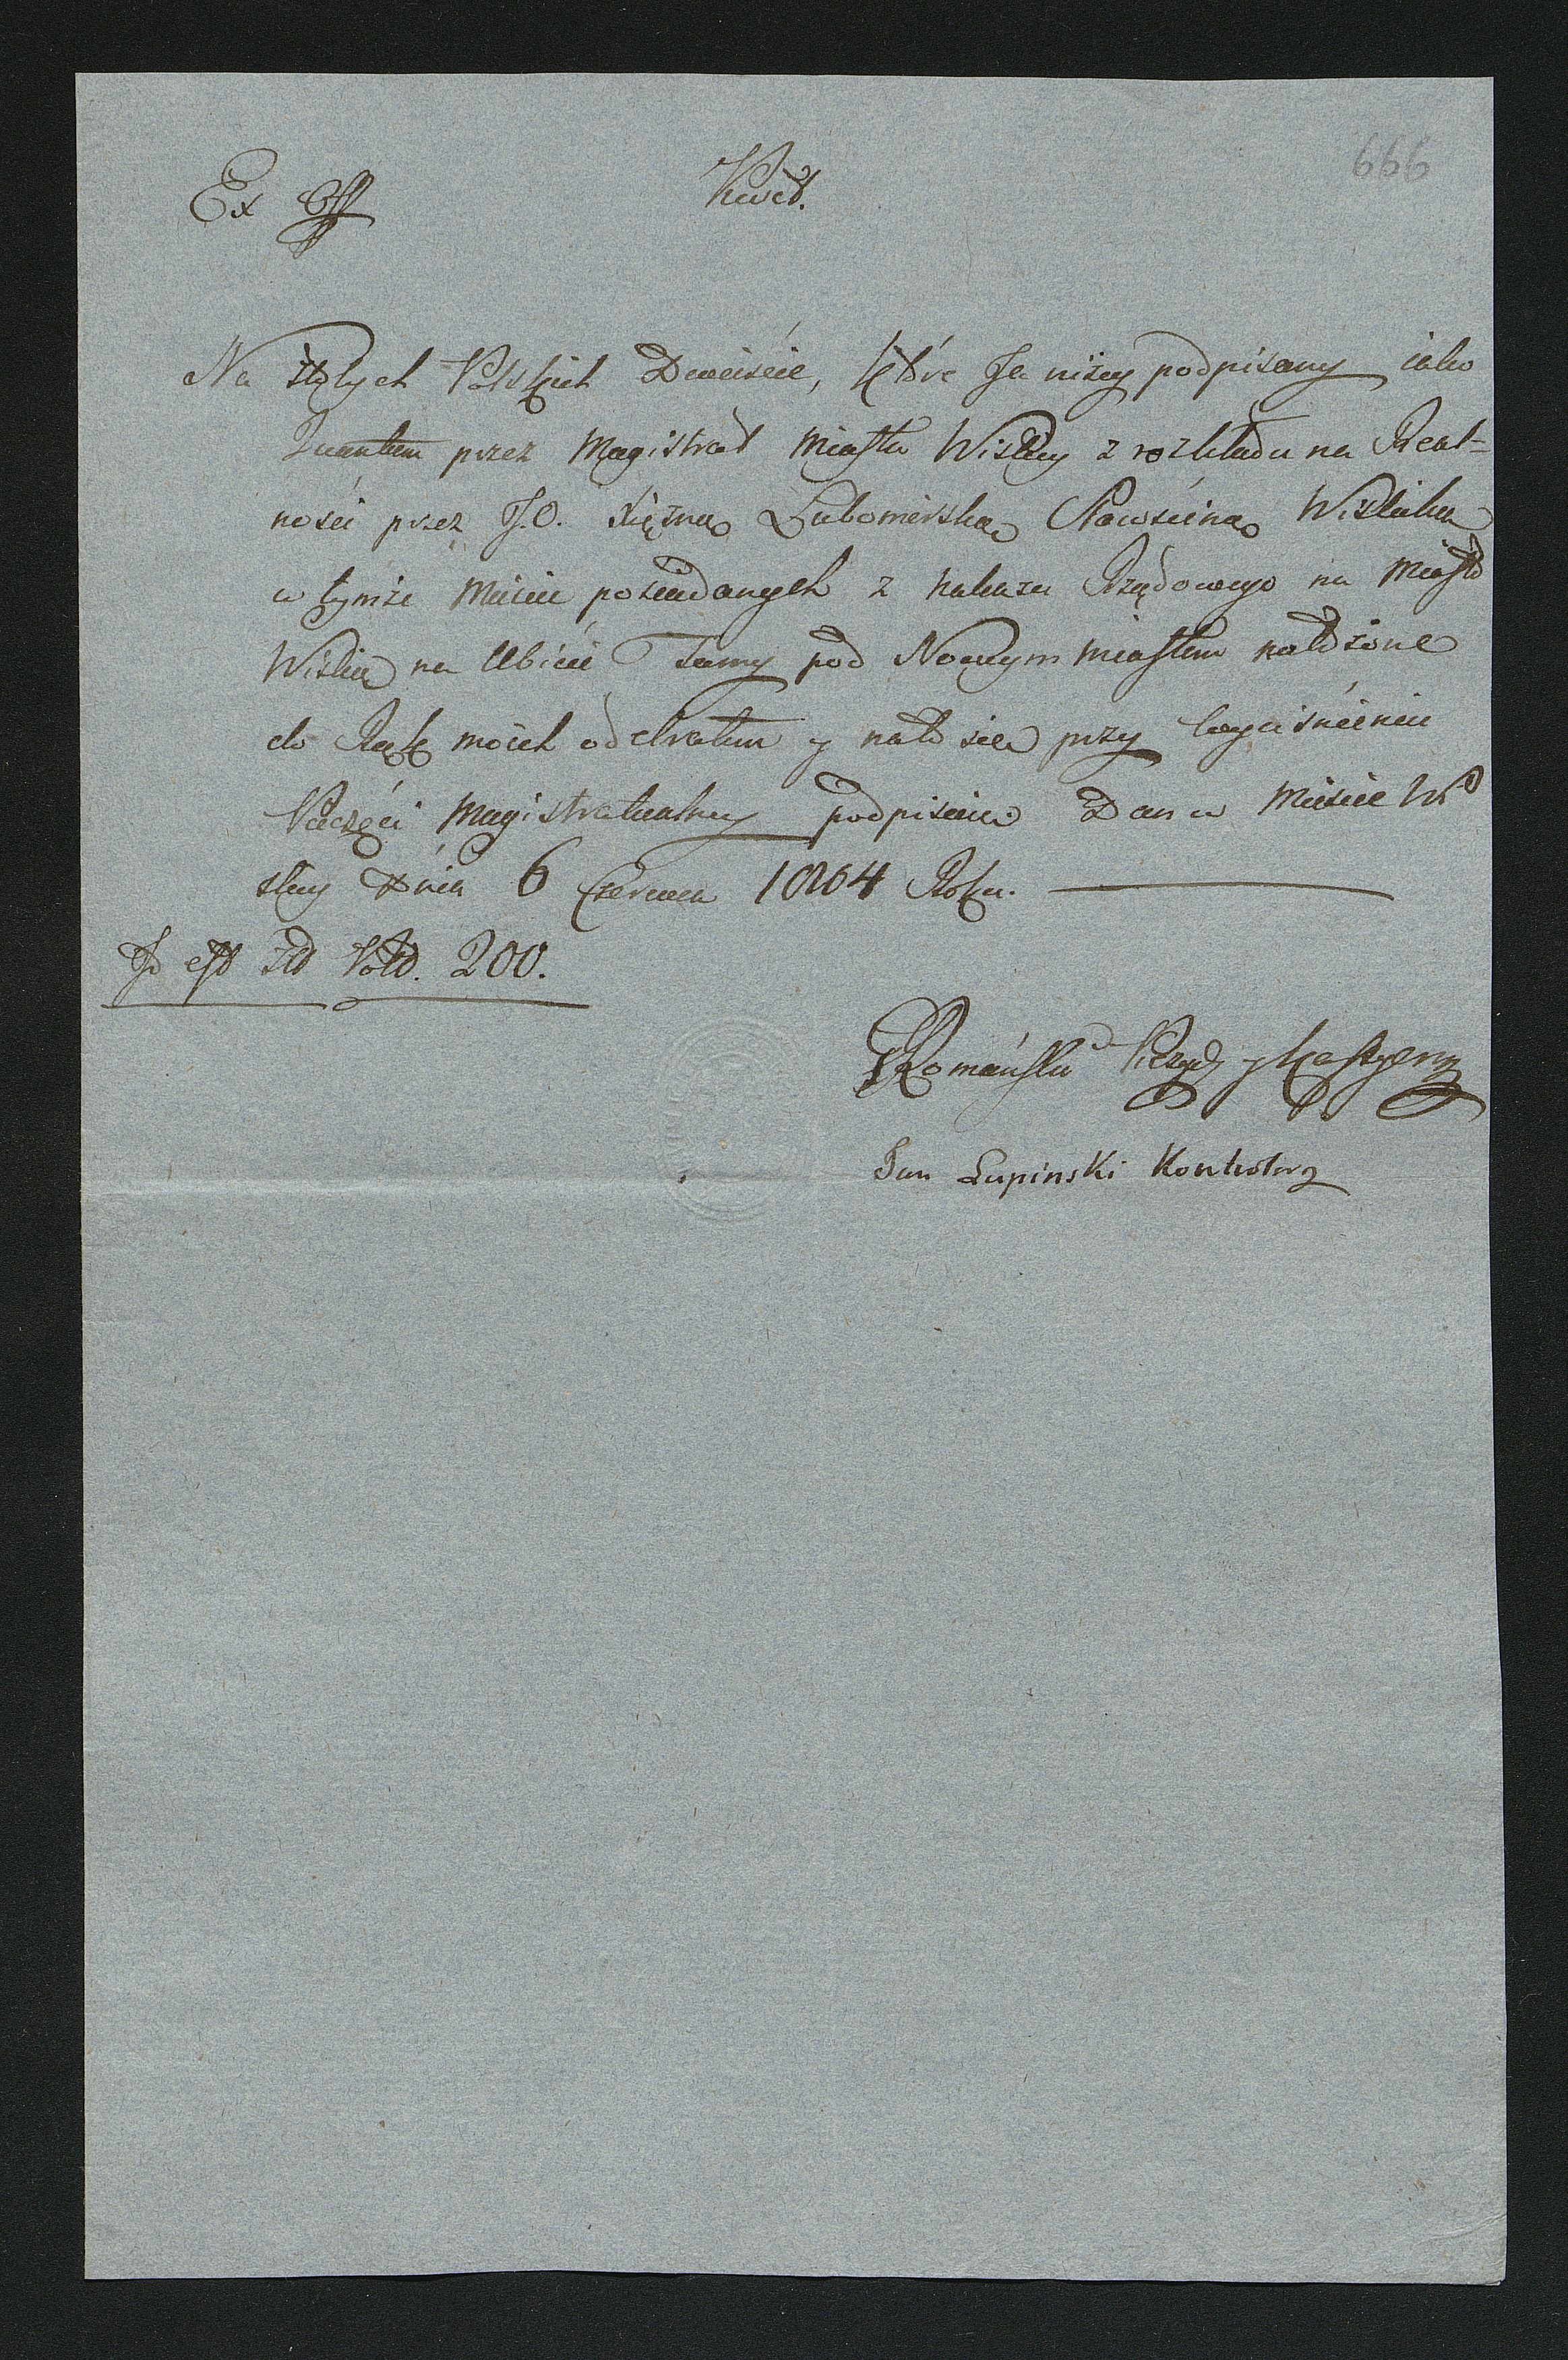 666
Ex Off
Kwit.
Na złotych Polskich Dwieście, które Ja niżey podpisany iako
Quantum przez Magistrat Miasta Wiślicy z rozkładu na Real-
ności przez J.O. Xiężnę Lubomirską Starościnę Wiślicką
w tymże Mieście posiadanych z nakazu Rządowego na Miasto
Wiślicę na Ubicie Tamy pod Nowym miastem nałożone
do Rąk moich odebrałem y na to się przy wyciśnieniu
Pieczęci Magistratualney podpisuię Dan w Mieście Wi
slicy Dnia 6 Czerwca 1804 Roku.
Jd est Złt Pold. 200.
Romański y Kassyer
Jan Łupinski Kontrolorz